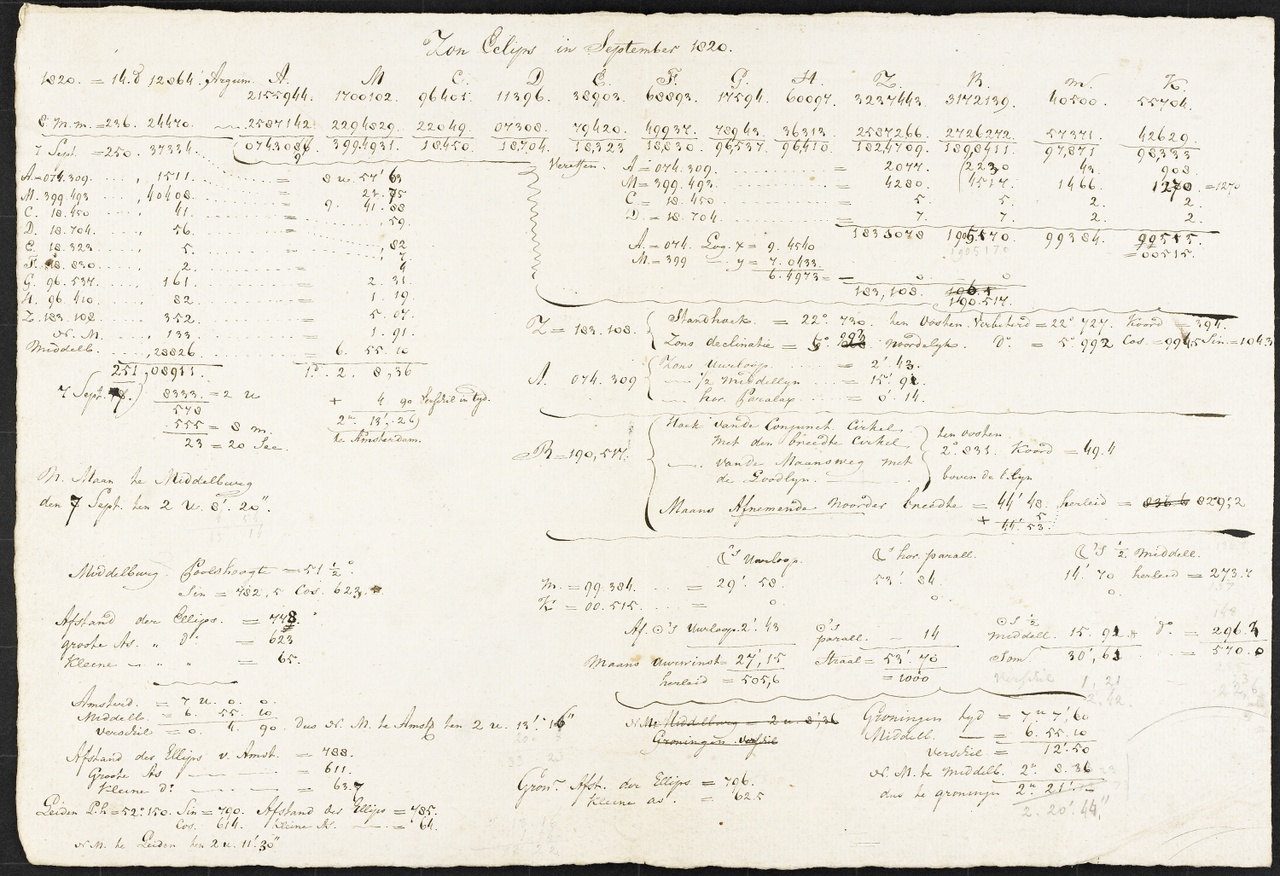 Zon Eclips in September 1820.
1820. = 14.d 12864. Argum. A. M C. D. E. F. G. H. Z. R. m. K.
2155944. 1700102. 96401. 11396. 38903. 68893. 17594. 60097. 3237443. 3172139. 40500. 55704.
8 m.m. = 236. 24470 2587142 2294829. 22049. 07308. 79420. 49937. 78943. 36313. 2587266. 2726272. 57371. 42629
7 Sept. = 250. 37334. 0743086 3994931. 18450. 18704. 18323 18830. 96537. 96410. 1824709. 1898411. 97,871 98,333
A = 074.309. , 1511. = 8 u. 57' 63
M. 399.493 , 40408. = 23. 75
C. 18.450 , 41. 9. 41. 88
D. 18.704. , 56. = , 59.
E. 18.323 , 5. , 82
F. 18.830 2. 4
G. 96.537. , 161. = 2. 31
H. 96.410 , 82 = 1. 19
Z. 183.108. , 352. = 5. 07
N. M. , 133 = 1. 91.
Middelb. ,28826 = 6. 55. 10
251,08911. 1.d 2. 8,36
7 Sept. 8333. = 2 u + 4 90 verschil in tyd.
578 2u 13'. 26
555 = 8 m. te Amsterdam.
23 = 20 Sec.
N. Maan te Middelburg
den 7 Sept. ten 2 u. 8'. 20".
Middelburg Poolshoogte = 51 ½°
Sin = 782,5 Cos. 623,
Afstand der Ellips. = 778.
groote As. " d° = 623
Kleine - - " = 65.
Amsterd. = 7 u. 0. 0.
Middelb = 6. 55. 10
Verschil = 0. 4. 90. Dus N. M. te Amstd ten 2 u. 13'. 16"
Afstand des Ellips v. Amst. = 788.
Groote As = 611.
Kleine d° = 63.7
Leiden P.h = 52°.150. Sin = 790. Afstand des Ellips = 785.
Cos. 614. Kleine As. = 64.
N M. te Leiden ten 2 u. 11'. 30"
Vereffen. A = 074.309. = 2077. 2230 43. 908.
M = 399.493. = 4280. 4517. 1466. 1270 = 1270
C = 18.450 = 5. 5. 2. 2.
D. = 18.704. = 7. 7. 2. 2.
1833078 1905170. 99384. 99515.
= 00515.
A. = 074. Log. x = 9. 4540
M. = 399 — y = 7. 0433
6. 4973 = — 0 0
183,108. 190.517.
Z = 183.108. Standhoek = 22°. 730. ten Oosten. Verbeterd = 22° 727. Koord = 394.
Zons declinatie = 5°. 993 Noordelyk. D°. = 5°. 992 Cos. = 9945 Sin = 1043
A. 074.309 Zons Uurloop. = 2'. 43.
— ½ Middellyn = 15'. 91.
— hor. Paralax = 0'. 14.
R = 190,517. Hoek vande Conjunct Cirkel
met den breedte Cirkel
—. vande Maansweg met
de Goodlyn.
ten oosten
2°. 831. Koord = 49.4
boven de E.lyn
Maans Afnemende Noorder breedte = 44' 48. herleid = 836 6 829,2
+ 5
44'. 53.
☾'s Uurloop. ☾'s hor. parall. ☾'s ½ Middell.
m. = 99.384. = 29'. 58. 53'. 84. 14'. 70 herleid = 273.7
K = 00.515. = 0 0. 0.
Af. ☉'s Uurloop. 2'. 43 ☉'s parall. - 14 ☉'s ½ middell. 15. 91 d°. = 296.3
Maans uurwinst = 27', 15 Straal = 53'. 70 Som. 30', 61 = 570.0
herleid = 505,6 = 1000 Verschil 1, 21
N. M. Middelburg = 2 u. 8',36
Groningen verschil
Groningen tyd = 7 u 7' 60
Middelb. = 6. 55. 10
Verschil = 12'. 50
N. M. te Middelb. 2u. 8. 36
dus te groningen 2u. 21'. —
2. 20'. 44"
Gron. Afst. der Ellips = 796.
Kleine as'. = 62.5